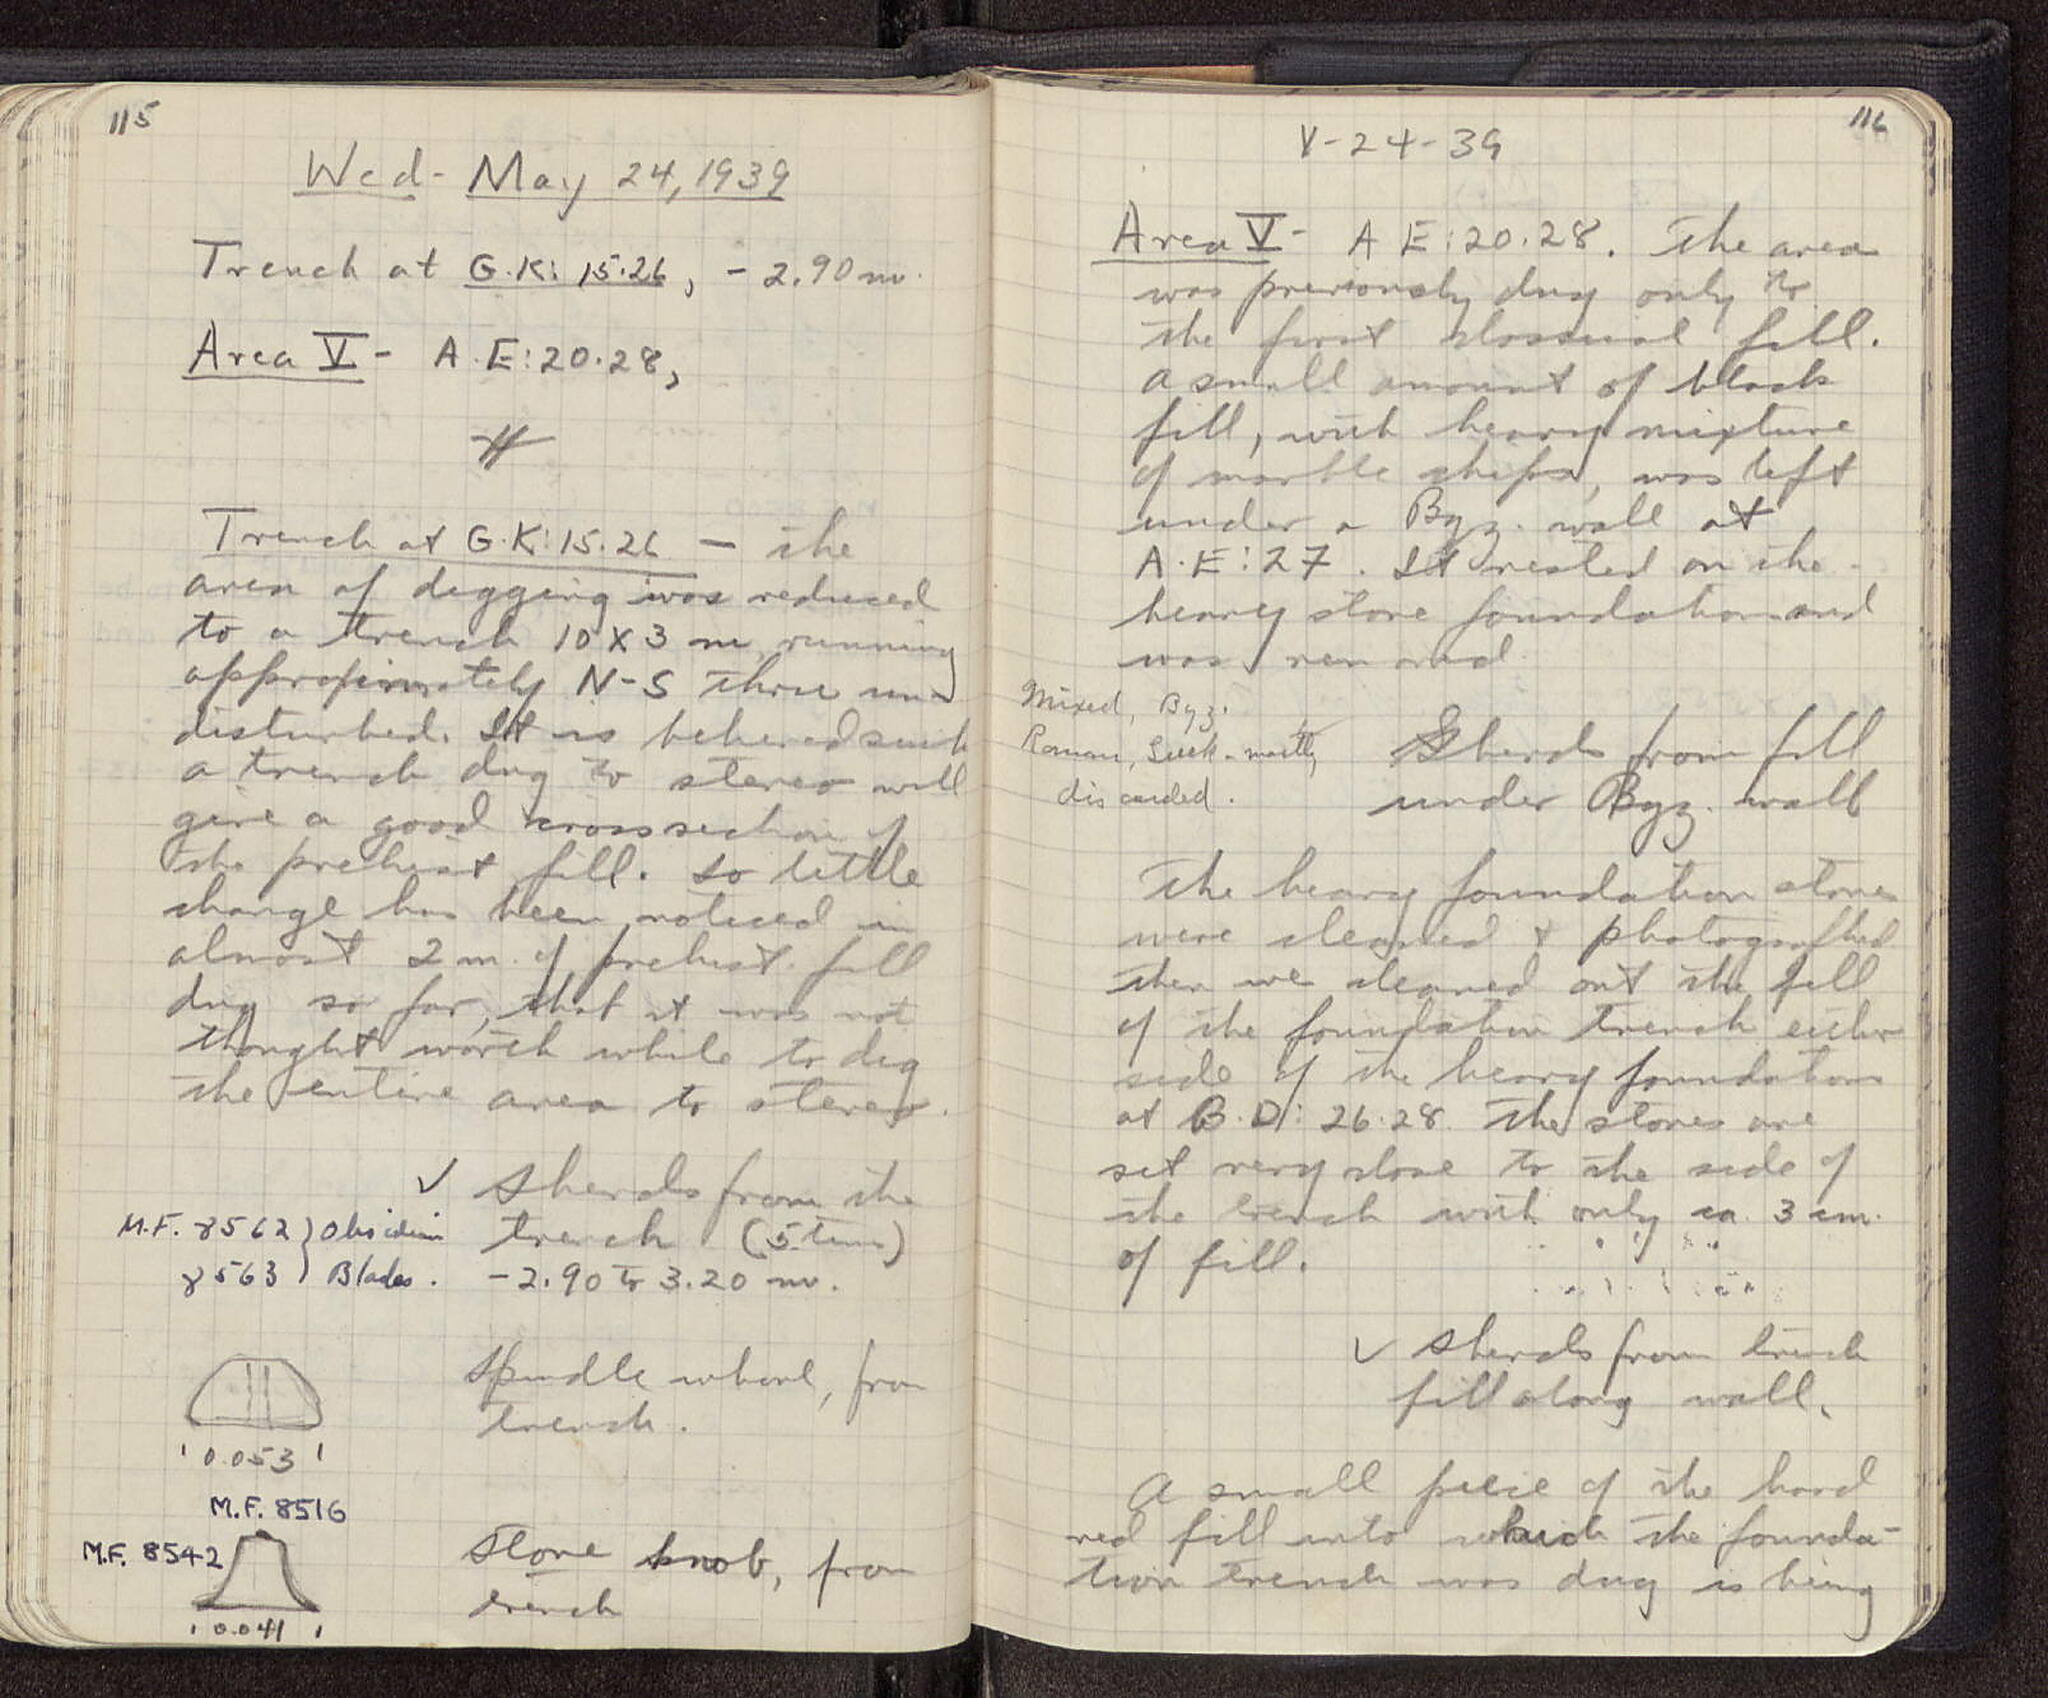 115
Wed- May 24, 1939
Trench at G.K: 15.26, - 2.90 m.
Area V - A.E:20.28,
Trench at G.K:15.26 - The
area of digging was reduced
to a trench 10 X 3 m. running
approximately N-S thru un-
disturbed. It is believed such
a trench dug to stereo will
give a good cross section of
the prehist. fill. So little
change has been noticed in
almost 2 m. of prehist. fill
dug so far, that it was not
thought worth while to dig
the entire area to stereo.
✓ Sherds from the
trench (5 tins)
-2.90 to 3.20 m.
M.F. 8562 } Obsidian
8563 } Blades.
Spindle whorl, from
trench.
0.053
M.F. 8516
M.F. 8542
Stone knob, from
trench
0.041
116
V-24-39
Area V - A E:20.28. The area
was previously dug only to
the first classical fill.
A small amount of black
fill, with heavy mixture
of marble chips, was left
under a Byz. wall at
A.E:27. It rested on the
heavy stone foundation and
was removed.
Mixed, Byz.
Roman, Greek - mostly
discarded.
Sherds from fill
under Byz. wall
The heavy foundation stones
were cleaned & photographed
then we cleaned out the fill
of the foundation trench either
side of the heavy foundation
at B.D: 26.28. The stones are
set very close to the side of
the trench with only ca. 3 cm.
of fill.
✓ Sherds from trench
fill along wall.
A small piece of the hard
red fill into which the founda-
tion trench was dug is being